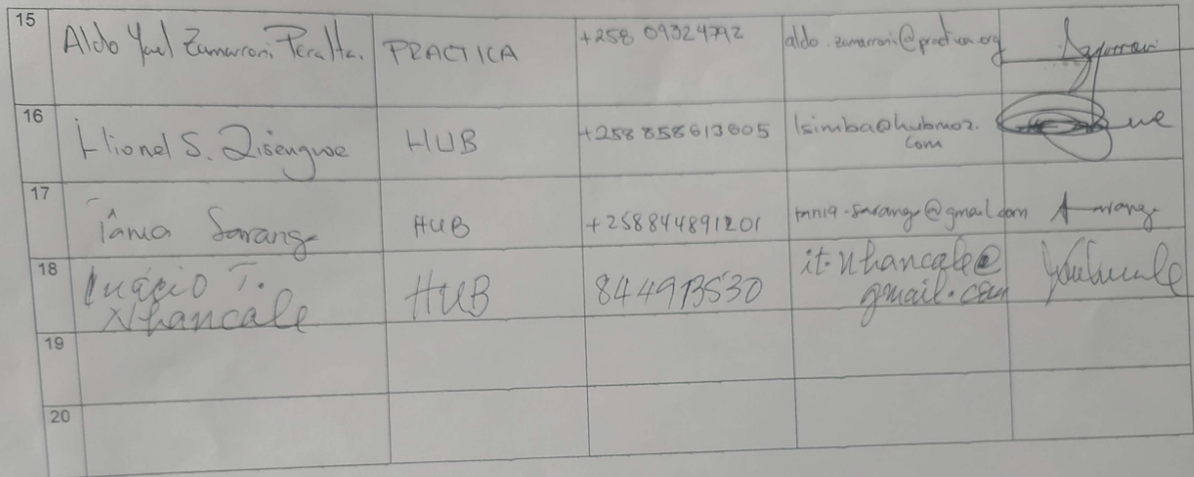 15 Aldo Yael Zamarroni Peralta. PRACTICA +258 09324792 aldo.zamarroni@practica.org
16 Hlionel S. Qisengwe HUB +258 858613605 lsimba@hubmoz.
com
17 Tânia Sarang HUB +258844891201 tania-sarang@gmail.com
18 Inácio T. HUB 844913530 it.nhancale@
Nhancale gmail.com
19
20